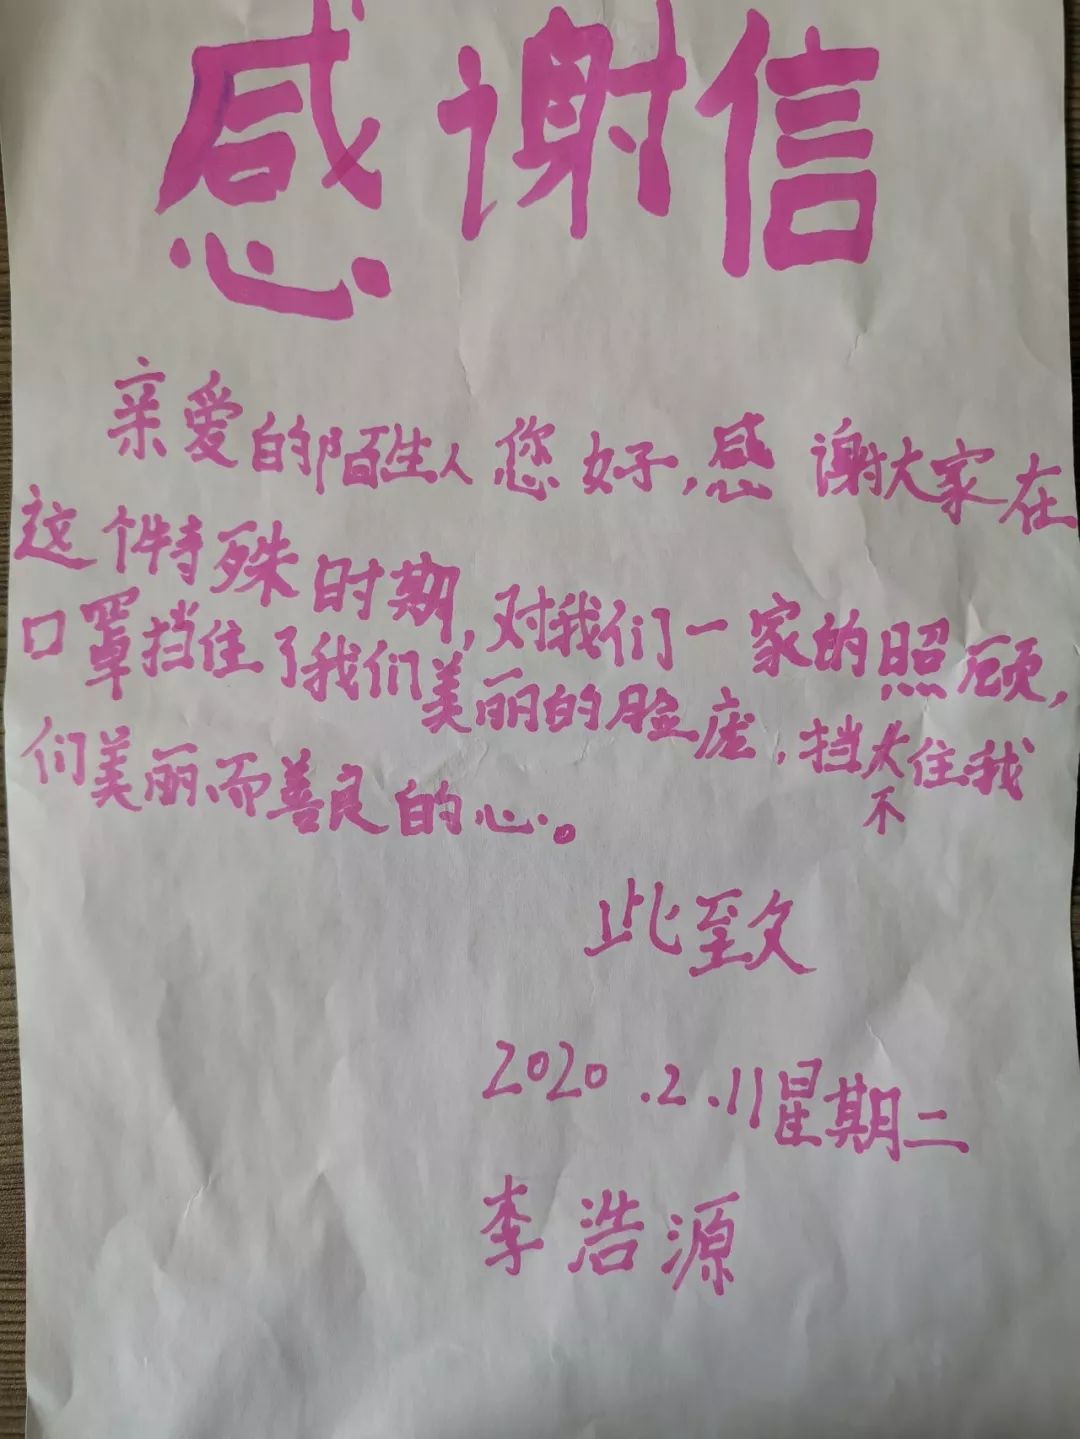 感谢信
亲爱的陌生人您好,感谢大家在
这个特殊时期,对我们一家的照顾,
口罩挡住了我们美丽的脸庞,挡不住我
们美丽而善良的心。
此致
2020.2.11星期二
李浩源